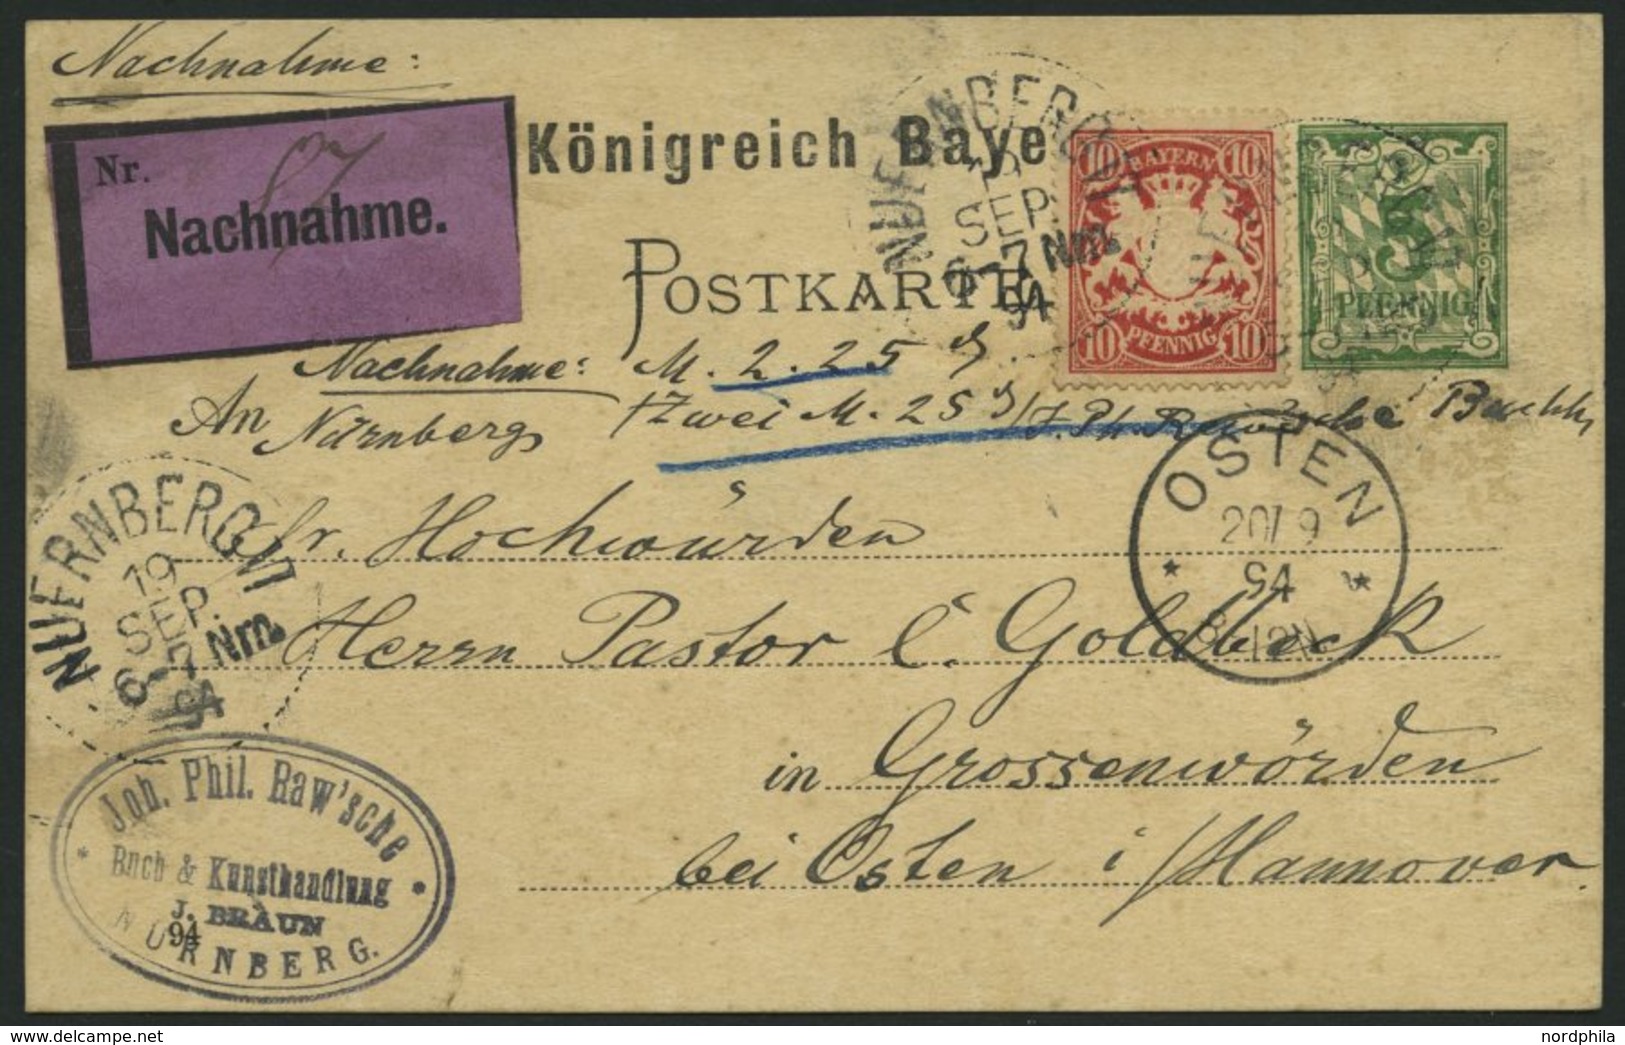 Nachnahme:
Nr. 87
Nachnahme.
Königreich Baye
POSTKARTE
NUERNBERG VI
19
SEP.
6-7 Nm.
94
10 BAYERN 10
10 PFENNIG 10
5
PFENNIG
Nachnahme: M. 2.25 ₰
An Nürnberg (Zwei M. 25 ₰) J. Ph. Raw'sche Buchh
OSTEN
20/9
94
8-12N
NUERNBERG VI
19
SEP.
6-7 Nm.
94
Sr. Hochwürden
Herrn Pastor C. Goldbeck
in Grossenwörden
bei Osten i/Hannover.
Joh. Phil. Raw'sche
Buch & Kunsthandlung
J. BRAUN
NÜRNBERG.
94
Bild © für www.delcampe.net
nordphila